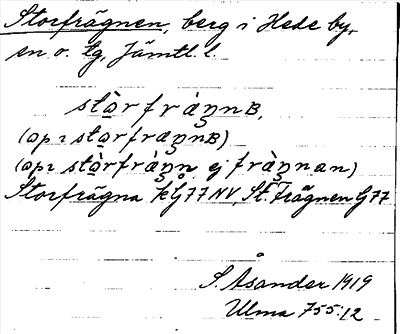 Storfrägnen, berg i Hede by,
sn o. tg, Jämtl. l.
stọrfràŋnB,
(ap2 stọrfraŋnB)
(ap2 stọ̀rfràŋn ej fràŋnan)
Storfrägna kG77NV, St. Frägnen G77
S. Åsander 1919
Ulma 755:12